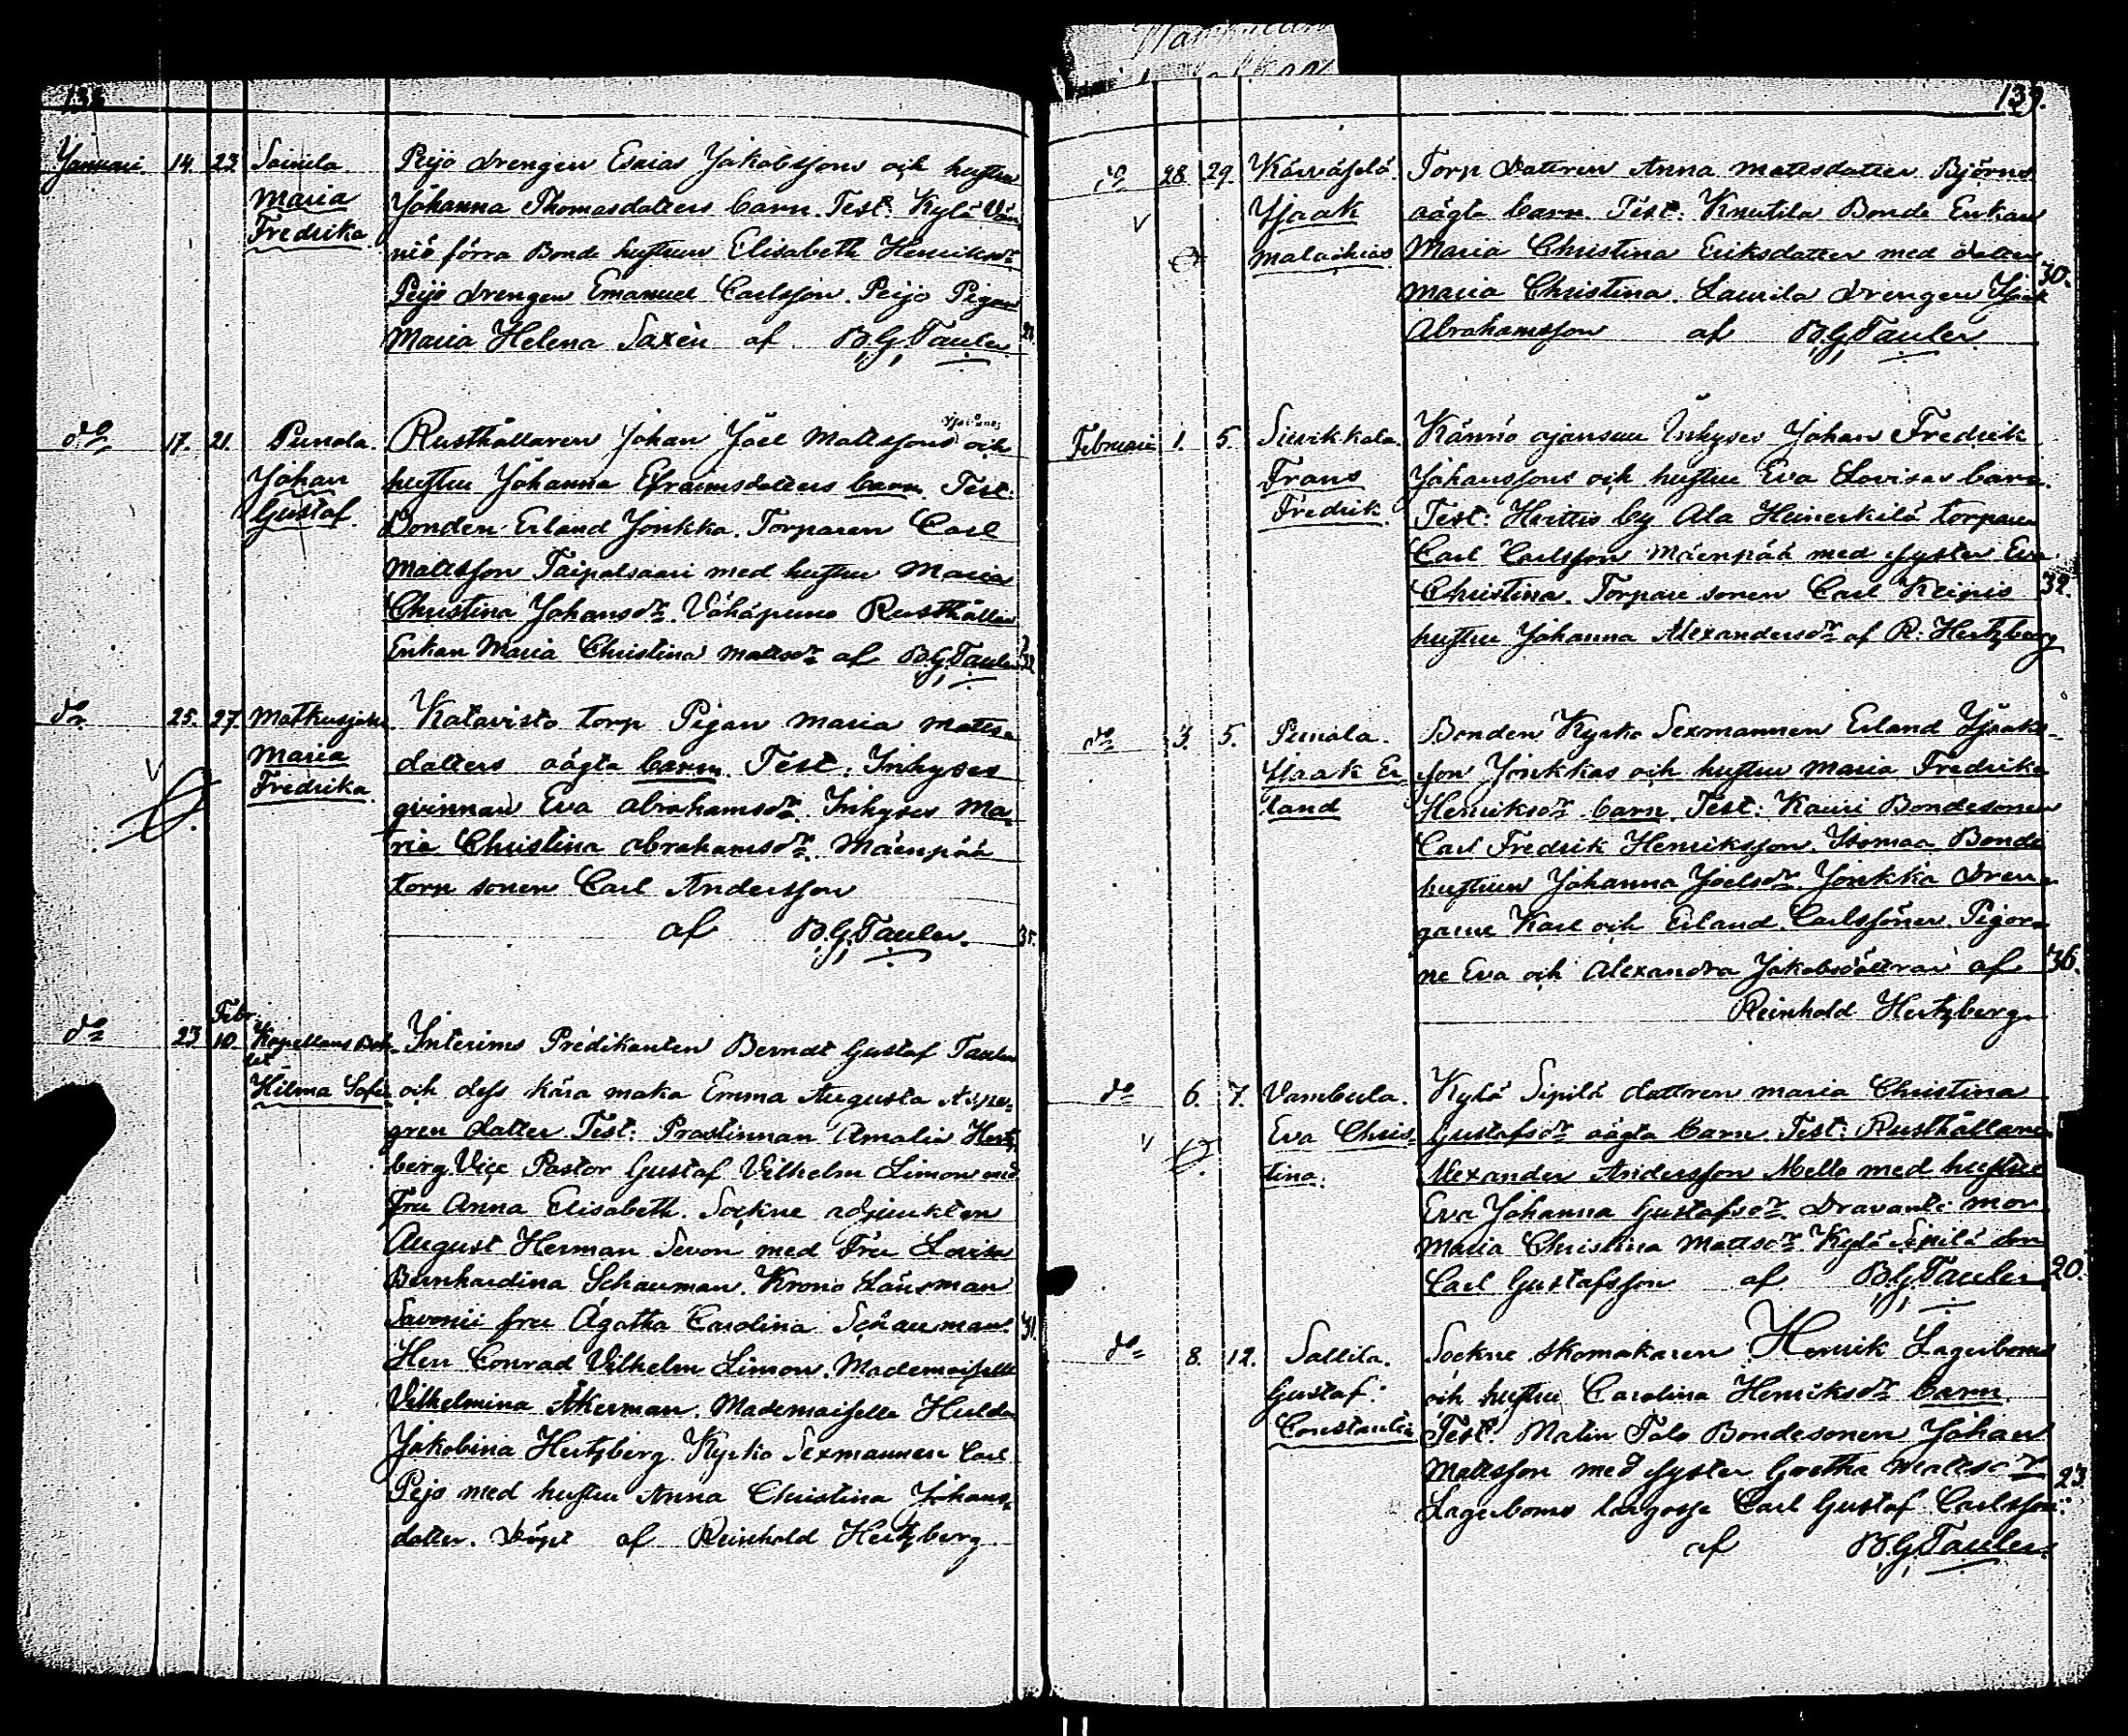 Januari. 14. 23 Soinila. Peijo drengen Esaias Jakobssons och hustru
Maria Johanna Thomasdotters barn. Test: Kylä
Fredrika niö förra Bonde hustrun Elisabeth Henriksdr
Peijo drengen Emanuel Carlsson. Peijo Pigan
Maria Helena Saxén af B.G. Tauler
do 17. 21. Punola. Rusthållaren Johan Joel Mattssons och
Johan hustru Johanna Efraimsdotters barn. Test:
Gustaf. Bonden Erland Jonkka. Torparen Carl
Mattsson Taipalsaari med hustru Maria
Christina Johansdr. Vähäpuno Rusthålls
Enkan Maria Christina Mattsdr af B.G. Tauler
do 25. 27. Matkusjoki Katavisto torp Pigan Maria Matts
Maria dotters oägta barn. Test: Inhyses
Fredrika. qvinnan Eva Abrahamsdr. Inhyses Ma-
ria Christina Abrahamsdr. Mäenpää
torp sonen Carl Andersson
af B.G. Tauler. 35.
do 23 Febr. 10 Kapellans Bol- Interims Predikanten Berndt Gustaf Tauler
let
Hilma Sofia och dess kära maka Emma Augusta Aspe-
gren dotter. Test: Prostinnan Amalia Hertz
berg Vice Pastor Gustaf Vilhelm Limon med
Fru Anna Elisabeth. Sockne adjunkten
August Herman Sevon med Fru Lovisa
Bernhardina Schauman. Krono Länsman
Savonii fru Agatha Carolina Schauman.
Herr Conrad Vilhelm Limon. Mademoiselle
Vilhelmina Åkerman. Mademoiselle Hulda
Jakobina Hertzberg. Kyrko Sexmannen Carl
Pejo med hustru Anna Christina Johans-
dotter. Döpt af Reinhold Hertzberg
139.
do 28 29. Torp dottren Anna Mattsdotter Björns
Isaak oägta barn. Test: Knutila Bonde Enkan
Malachias Maria Christina Eriksdotter med dotter
Maria Christina. Laurila drengen Isaak 30.
Abrahamsson af B.G. Tauler
Februari 1. 5. Suvikkala. Kännö ajansuu Inhyses Johan Fredrik
Frans Johanssons och hustru Eva Lovisas barn.
Fredrik. Test: Herttis by Ala Heinerkilä torparen
Carl Carlsson Mäenpää med syster Eva
Christina. Torpare sonen Carl Keipis 32.
hustru Johanna Alexandersdr af R. Hertzberg
do 3. 5. Punola. Bonden Kyrko Sexmannen Erland Isaaks-
Isaak Er son Jonkkas och hustru Maria Fredrika
land Henriksdr barn. Test: Kauri Bondesonen
Carl Fredrik Henriksson. Isomaa Bonde
hustrun Johanna Joelsdr. Jonkka Dren-
garne Karl och Erland Carlssöner. Pigor-
ne Eva och Alexandra Jakobsdöttrar af 36.
Reinhold Hertzberg.
do 6. 7. Vambula. Kylä Sipilä dottren Maria Christina
Eva Chris- Gustafsdr oägta barn. Test: Rusthållaren
tina. Alexander Andersson Mello med hustru
Eva Johanna Gustafsdr. Dravanti mor
Maria Christina Mattsdr. Kylä Sipilä son
Carl Gustafsson af B.G. Tauler 20.
do 8. 12. Sallila. Sockne skomakaren Henrik Lagerboms
Gustaf och hustru Carolina Henriksdr barn.
Constantin Test: Matin Talo Bondesonen Johan
Mattsson med syster Gretha Mattsdr 23
Lagerboms lärgosse Carl Gustaf Carlsson.
af B.G. Tauler.